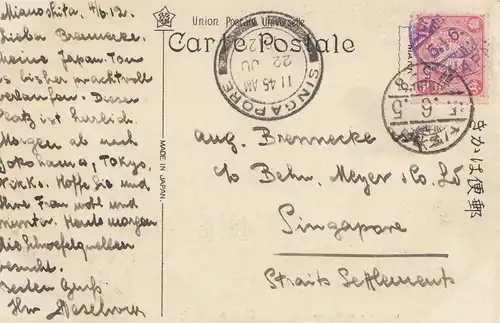 Mianoshita, 4/6.12.
Lieber Brennecke,
Meine Japan-Tour
ist bisher prachtvoll
verlaufen. Dieser
Platz ist herrlich.
Morgen ab nach
Yokohama, Tokyo,
Nikko. Hoffe Sie und
Ihre Frau wohl und
munter. Heute morgen
die Schwefelquellen
besucht.
Besten Gruß
Ihr
MADE IN JAPAN.
Union Postale Universelle
Carte Postale
SINGAPORE
11 45 AM
22 JU
Aug. Brennecke
c/o Behn, Meyer & Co. Ld
Singapore
Straits Settlements
郵便はかき